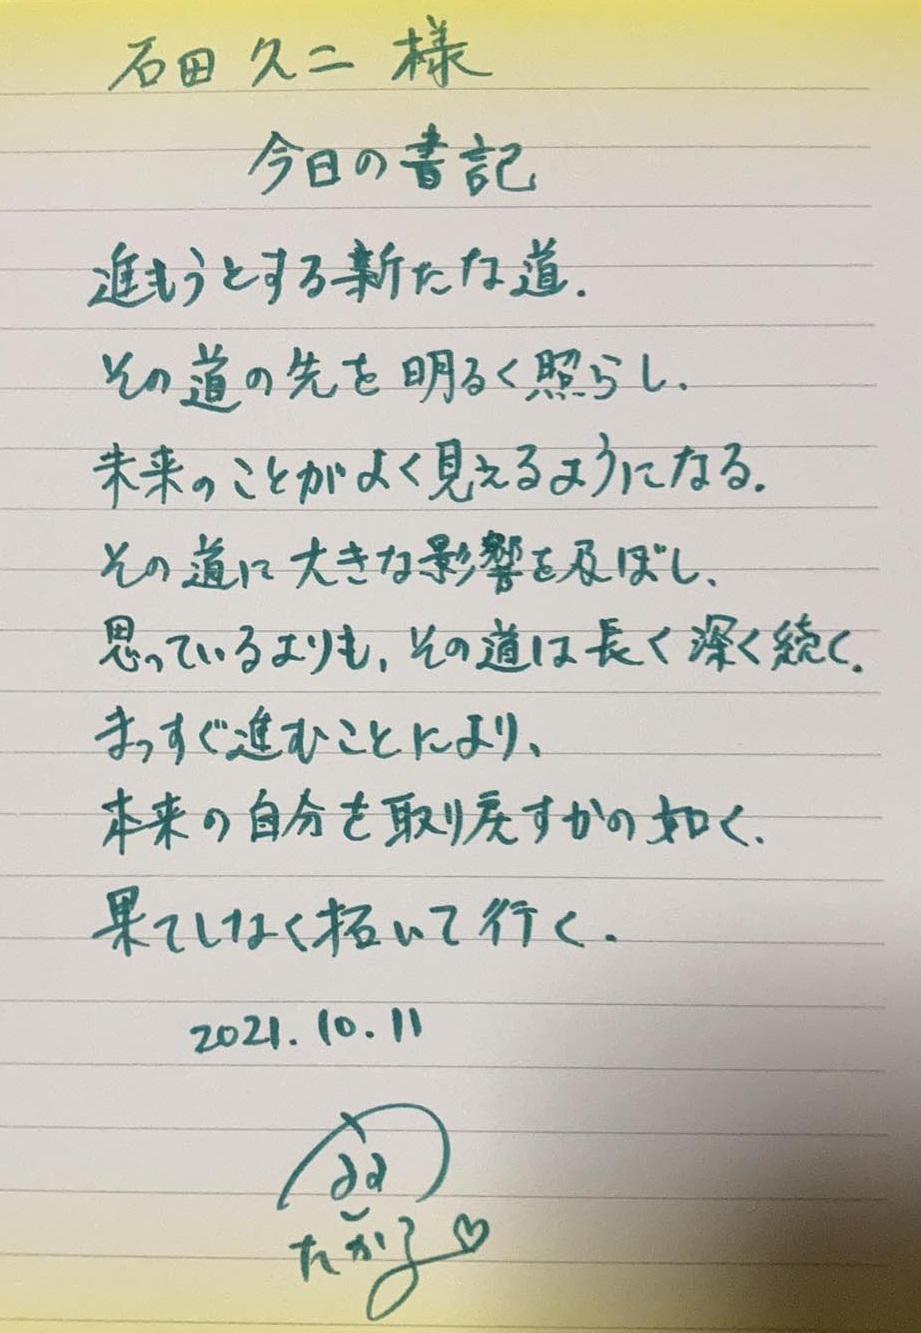 石田久二様
今日の書記
進もうとする新たな道.
その道の先を明るく照らし、
未来のことがよく見えるようになる.
その道に大きな影響を及ぼし、
思っているよりも、その道は長く深く続く.
まっすぐ進むことにより、
本来の自分を取り戻すかの如く.
果てしなく拓いて行く.
2021.10.11
たか子♡